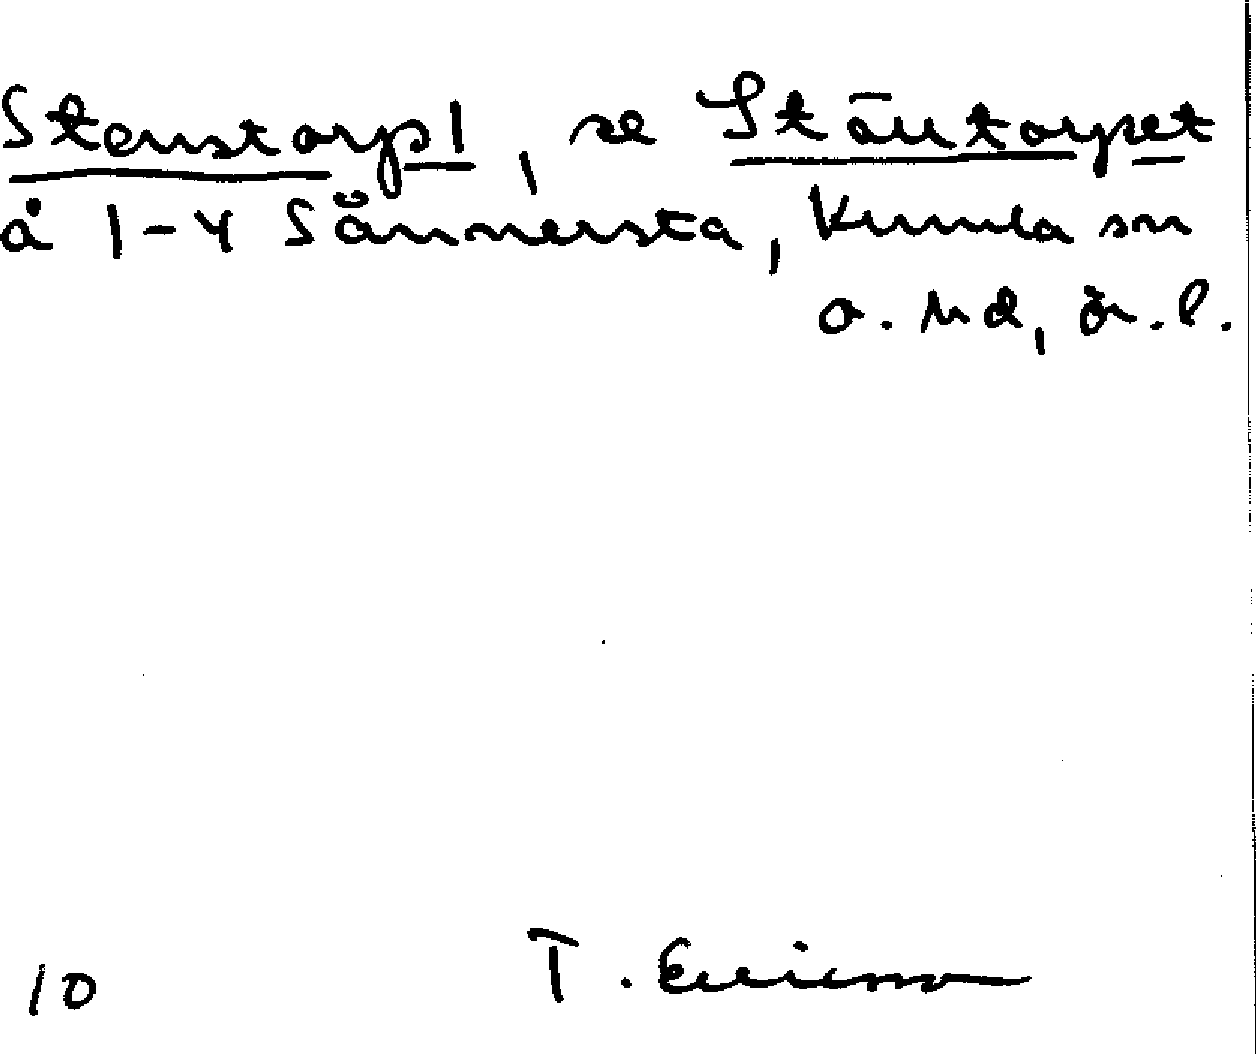 Stenstorp 1, se Stäntorpet
å 1-4 Sånnersta, Kumla sn
o. hd, ör. l.
10 T. Ericsson